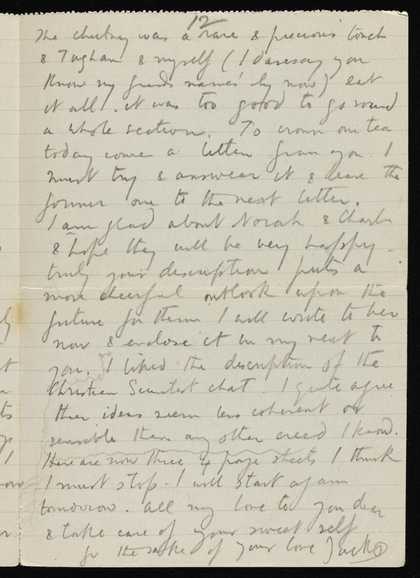 12
The chutney was a rare & precious touch
& Tugham & myself (I daresay you
know my friends names by now) eat
it all. it was too good to go round
a whole section. To crown our tea
today came a letter from you. I
must try & answear it & leave the
former one to the next letter.
I am glad about Norah & Charlie
& hope they will be very happy –
truly your description puts a
more cheerful outlook upon the
future for them I will write to her
now & enclose it in my next to
you. I liked the description of the
Christian Scientist chat – I quite agree
their ideas seem less coherent or
sensible than any other creed I know.
Here are now three 4 page sheets I think
I must stop – I will start again
tomorrow. all my love to you dear
& take care of your sweet self
for the sake of your love Jack